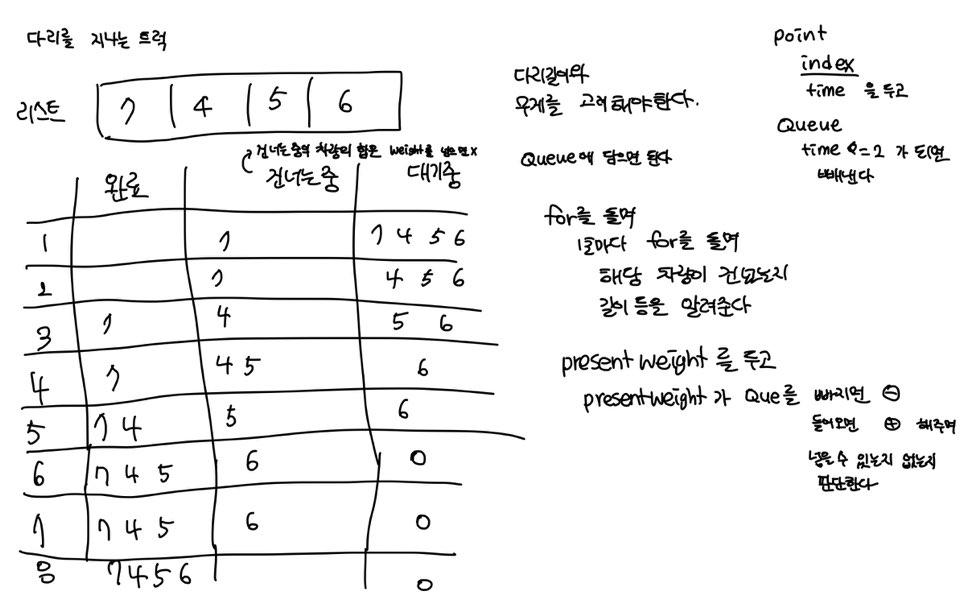 다리를 지나는 트럭
리스트 7 4 5 6
건너는중의 차량의 합은 weight를 넘으면 x
완료 건너는중 대기중
1 7 7 4 5 6
2 7 4 5 6
3 7 4 5 6
4 7 4 5 6
5 7 4 5 6
6 7 4 5 6 0
7 7 4 5 6 0
8 7 4 5 6 0
다리길이와
무게를 고려해야한다.
Queue에 담으면 된다
for를 돌며
1초마다 for를 돌며
해당 차량이 건넜는지
길이 등을 알려준다
present weight를 두고
present weight가 Que를 빠지면 ⊖
들어오면 ⊕ 해주며
넣을 수 있는지 없는지
판단한다
point
index
time 을 두고
Queue
time <=2 가 되면
빼낸다